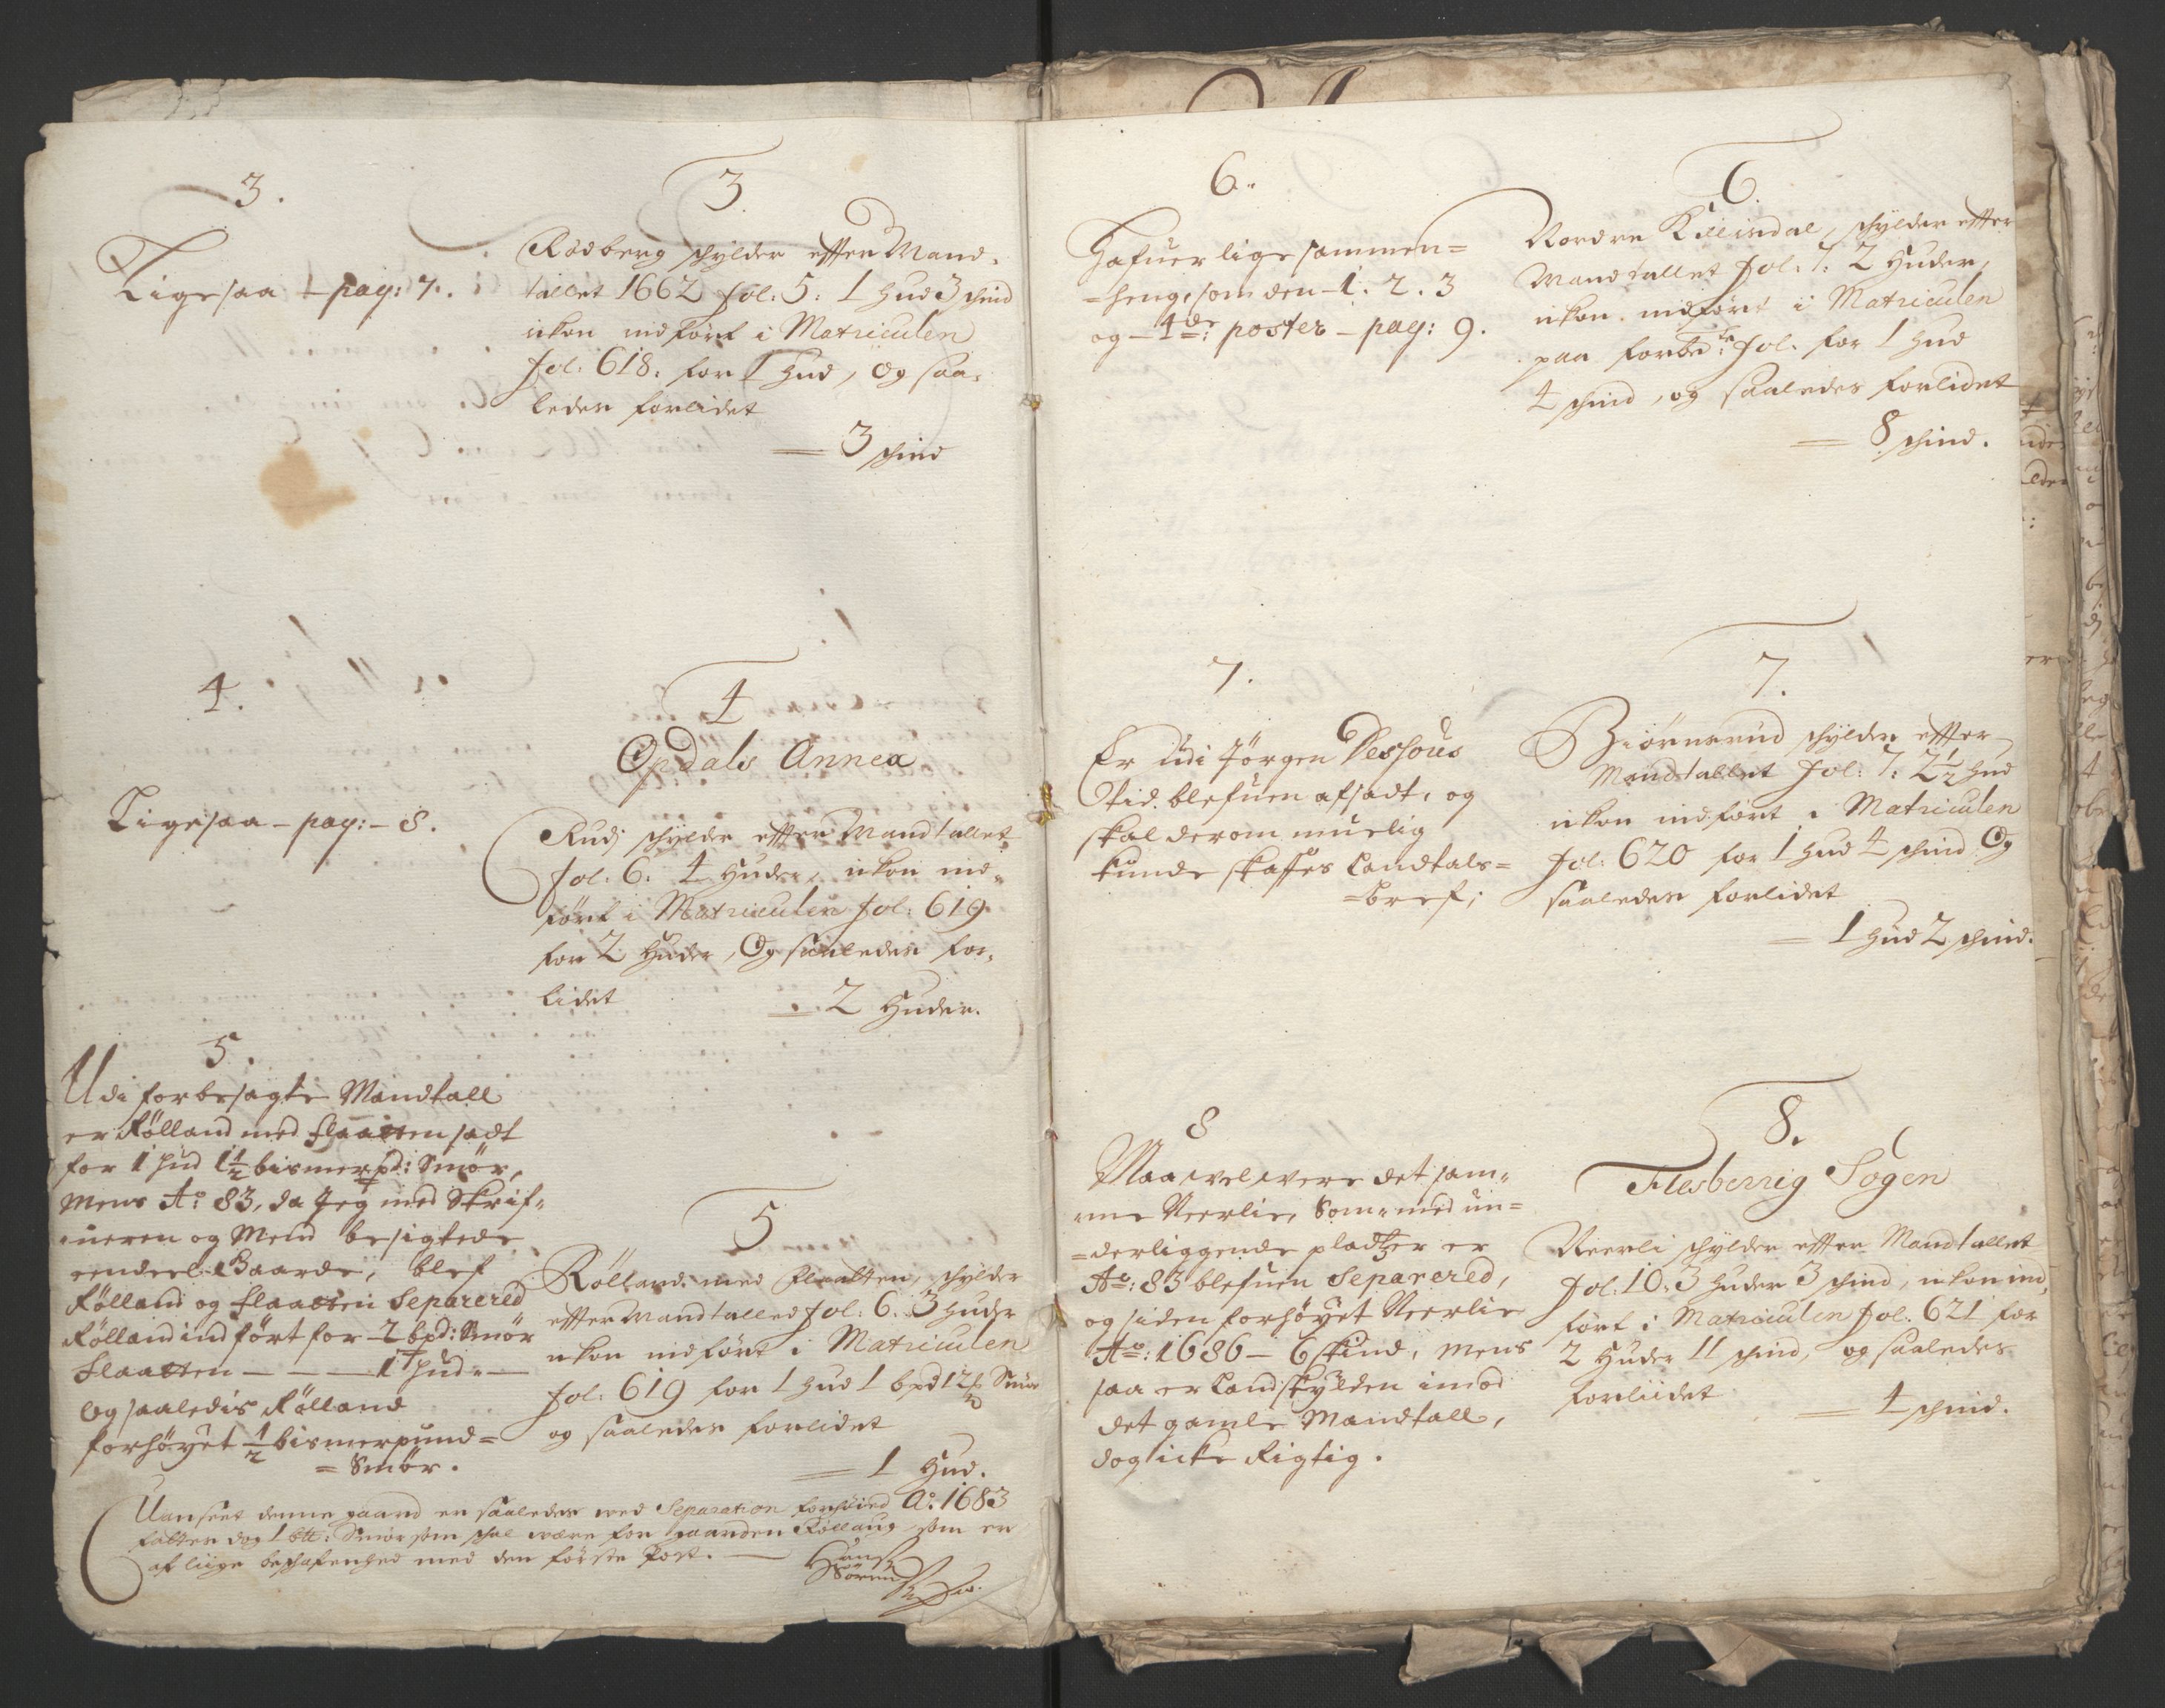 3.
Ligesaa - pag: 7.
3.
Rødberg schylder efter Mand-
tallet 1662 fol: 5: 1 hud 3 schind
ikon indført i Matriculen
fol: 618: for 1 Hud, Og saa-
leden forlidet
= 3 schind
4.
Ligesaa - pag: - 8.
4
Opdals Annex
Rudj schylder efter Mandtallet
fol. 6: 4 Huder, ikon ind-
ført i Matriculen fol: 619
for 2 Huder, Og saaleden for-
lidet = 2 Huder.
5.
Udi forbesagte Mandtall
er Rølland med Flaatten sadt
for 1 hud 1½ bismerpd: Smør,
Mens A°: 83, da Jeg med Skrif-
ueren og Mend besigtede
eendeel Gaarde, blef
Rølland og Flaatten Separered
Rølland indført for 2 bpd: Smør
Flaatten - - - 1 hud -
Og saaledis Rølland
forhøyet ½ bismerpund=
= Smør.
5
Rølland med Flaatten, schylder
efter Mandtalled fol: 6. 3 Huder
ikon indført i Matriculen
fol: 619 for 1 Hud 1 bpd 12 Smør
og saaleden forlidet
= 1 Hud.
Uanseet denne gaard er saaleden ved Separation forhøied A°. 1683
fattes dog 1 Smør som schal være for gaarden Røllaug som er
af liige beschafenhed med den første Post. -
Hans
Sørens
6.
Hafuer lige sammen=
=heng, som den - 1. 2. 3
og - 4de: poster - pag: 9.
6.
Nordre Killindal, schylder efter
Mandtallet fol: 7: 2 Huder,
ikon indført i Matriculen
paa forbete: fol. for 1 Hud
4 schind, og saaledes forlidet
= 8 schind.
7.
Er udi Jørgen Dessous
tid blefuen afsadt, og
skal derom muelig
kunde skaffes Landtals=
=bref;
7.
Biørnerud schylder efter
Mandtallet fol: 7: 2½ hud
ikon indført i Matriculen
fol: 620 for 1 Hud 4 schind Og
saaleden forlidet
= 1 Hud 2 schind.
8
Maa vel vere det sam-
me Neerlie, Som med un=
=derliggende pladtzer er
A°: 83 blefuen Separered,
og siden forhøyet Neerlie
A°: 1686 - 6 skind, Mens
saa er Landskylden imod
det gamle Mandtall,
dog icke Rigtig.
8.
Flesberrig Sogen
Neerli schylder efter Mandtallet
fol: 10: 3 Huder 3 schind, ikon ind-
ført i Matriculen fol. 621 for
2 Huder 11 schind, og saaledes
forliidet
= 4 schind.